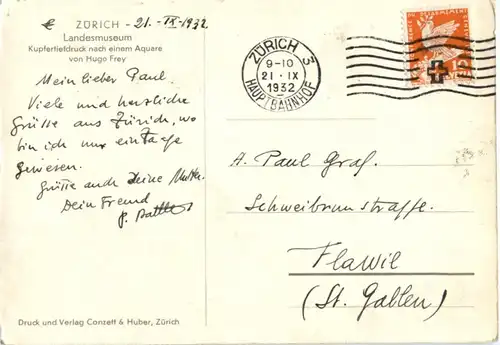 ZÜRICH - 21. - IX - 1932
Landesmuseum
Kupfertiefdruck nach einem Aquare
von Hugo Frey
Mein lieber Paul.
Viele und herzliche
Grüsse aus Zürich, wo
bin ich nur ein Tage
gewesen.
Grüsse auch Deine Mutter.
Dein Freund
P.
Druck und Verlag Conzett & Huber, Zürich
ZÜRICH 3
9-10
21. IX
1932
HAUPTBAHNHOF
A. Paul Graf.
Schweibrunstrasse.
Flawil
(St. Gallen)